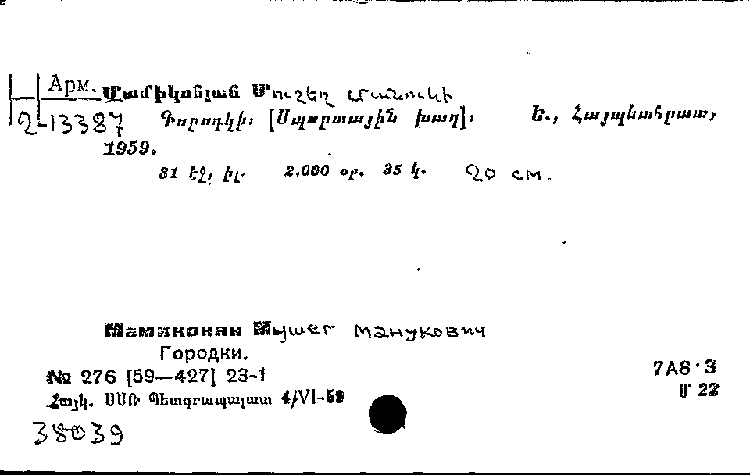 Арм. Մամիկոնյան Մուշեղ Մանուկի
2-13387 Գորոդկի։ [Սպորտային խաղ]։ Ե., Հայպետհրատ,
1959.
31 էջ, իլ. 2.000 օր. 35 կ. 20 см.
Мамиконян Мушег Манукович
Городки.
№ 276 [59—427] 23-1
7А8·3
Հայկ. ՍՍՌ Պետգրապալատ 4/VI-59
Մ 22
38039